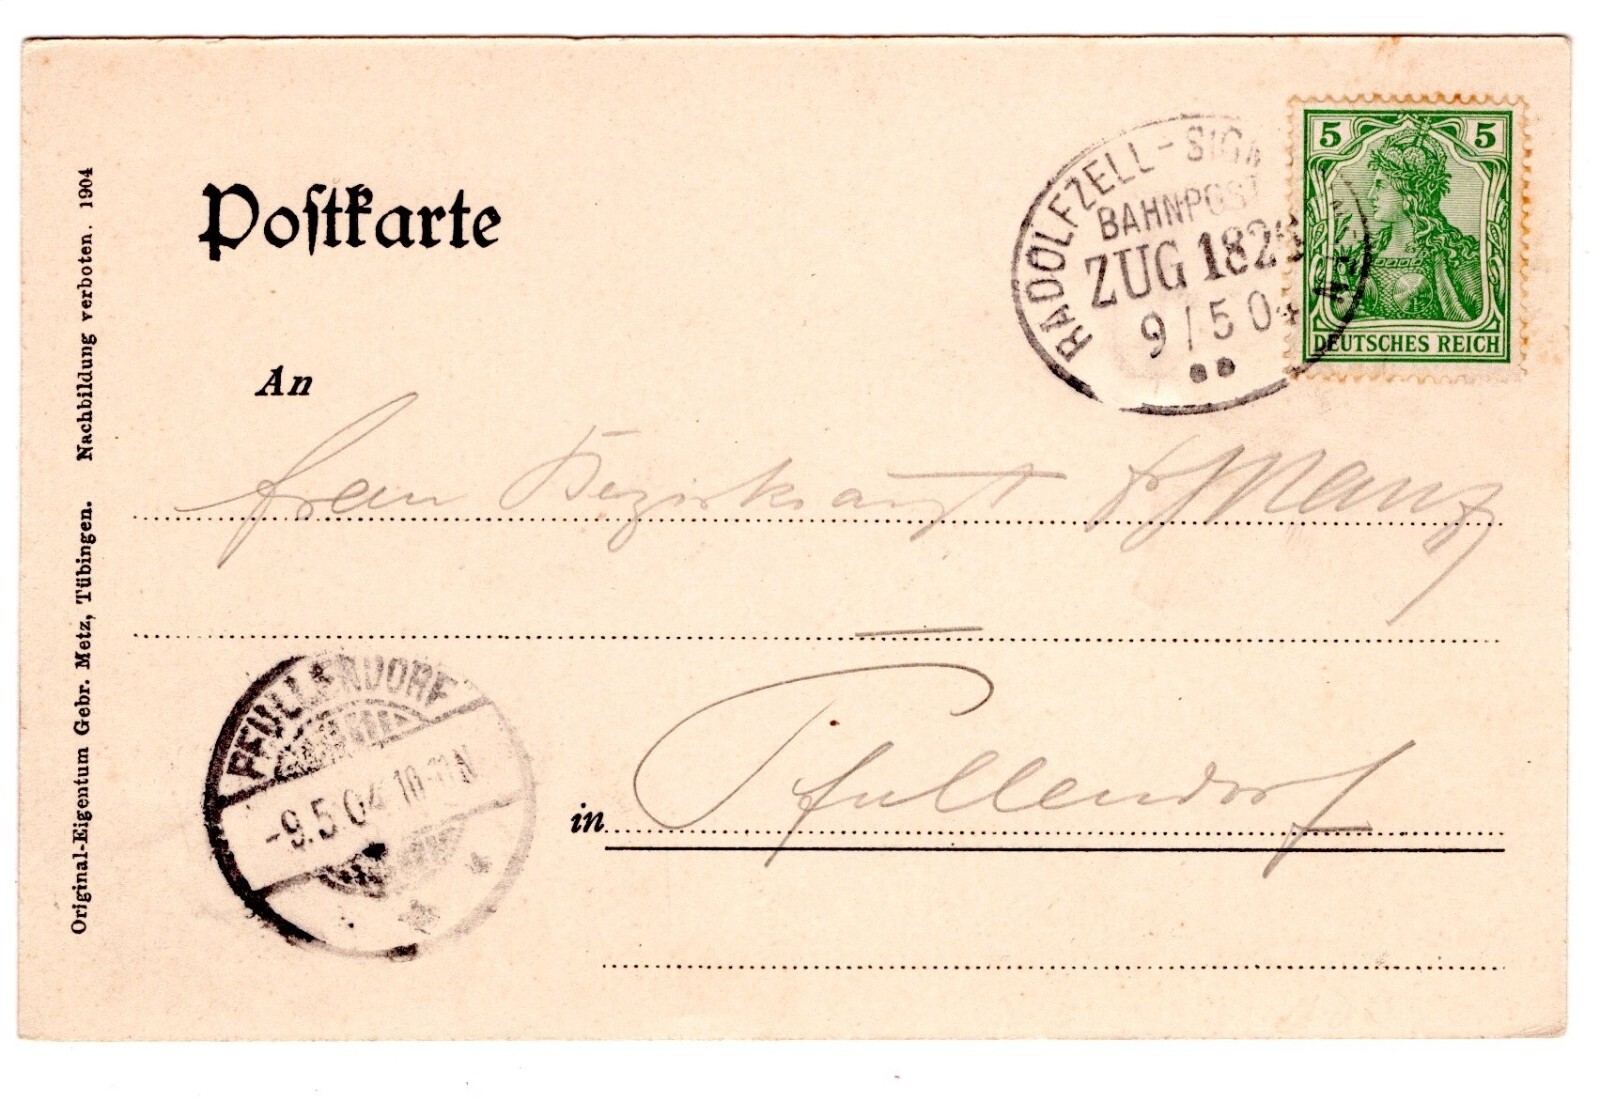 Postkarte
RADOLFZELL-SIGM
BAHNPOST
ZUG 182
9/5 04
5 5
DEUTSCHES REICH
An
Frau Bezirksarzt Dr Manz
PFULLENDORF
-9.5.04 10-11N
in Pfullendorf
Original-Eigentum Gebr. Metz, Tübingen. Nachbildung verboten. 1904